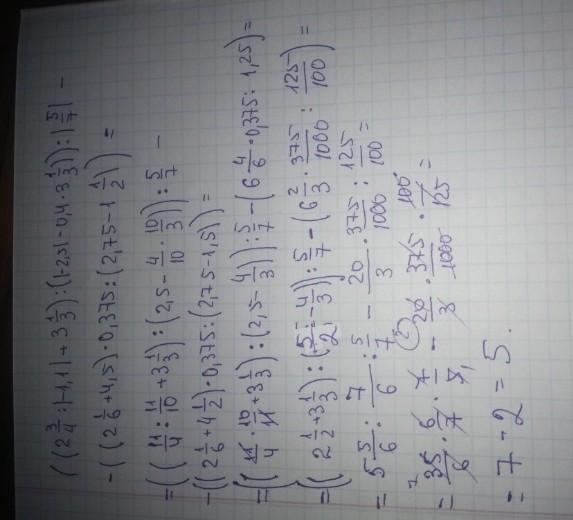 ((2 3/4 : |-1,1| + 3 1/3) : (|-2,5| - 0,4 · 3 1/3)) : |5/7| -
- ((2 1/6 + 4,5) · 0,375 : (2,75 - 1 1/2)) =
= ((11/4 : 11/10 + 3 1/3) : (2,5 - 4/10 · 10/3)) : 5/7 -
- ((2 1/6 + 4 1/2) · 0,375 : (2,75 - 1,5)) =
= ((11/4 · 10/11 + 3 1/3) : (2,5 - 4/3)) : 5/7 - (6 4/6 · 0,375 : 1,25) =
= ((2 1/2 + 3 1/3) : (5/2 - 4/3)) : 5/7 - (6 2/3 · 375/1000 : 125/100) =
= 5 5/6 : 7/6 : 5/7 - 20/3 · 375/1000 : 125/100 =
= 35/6 · 6/7 · 7/5 - 20/3 · 375/1000 · 100/125 =
= 7 - 2 = 5.